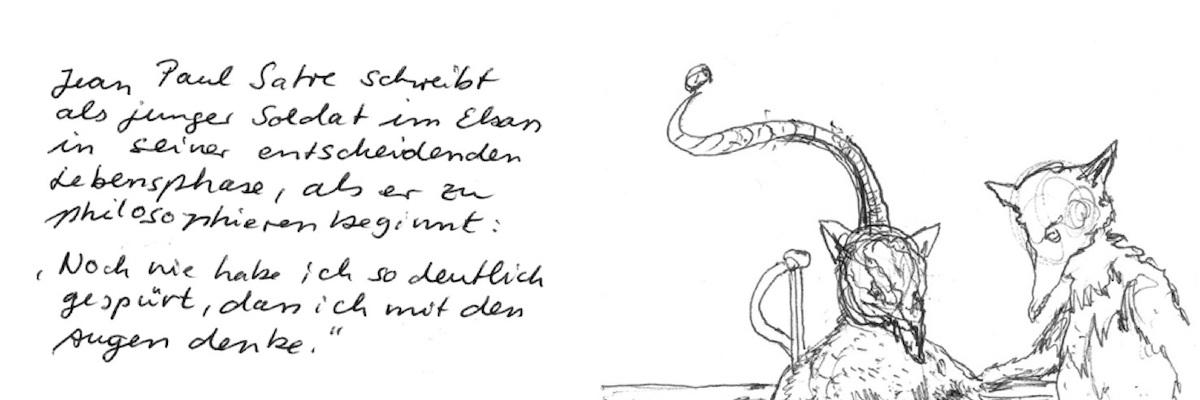 Jean Paul Satre schreibt
als junger Soldat im Elsass
in seiner entscheidenden
Lebensphase, als er zu
philosophieren beginnt:
„Noch nie habe ich so deutlich
gespürt, dass ich mit den
Augen denke."